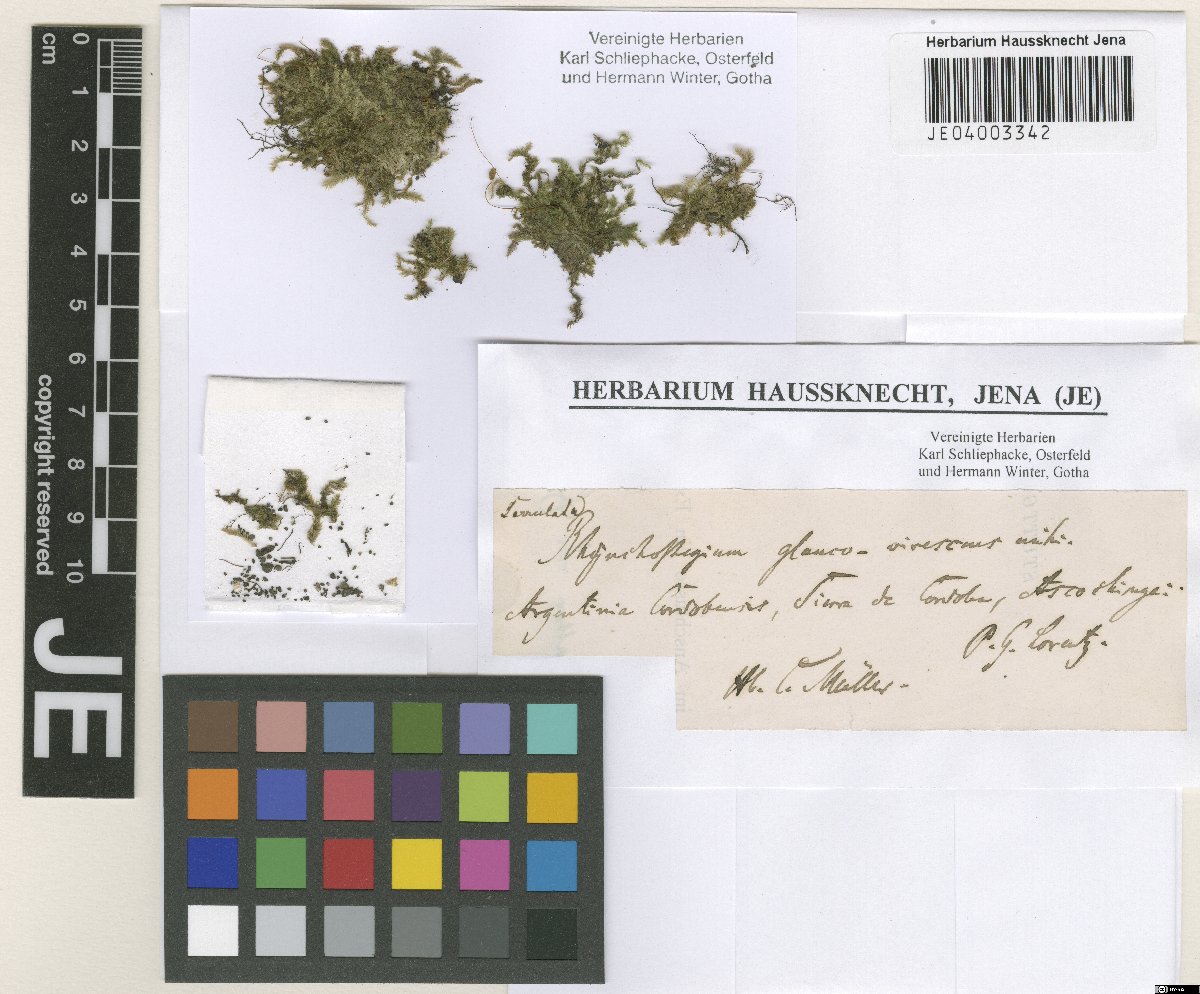 Vereinigte Herbarien
Karl Schliephacke, Osterfeld
und Hermann Winter, Gotha
Herbarium Haussknecht Jena
JE04003342
cm
0
1
2
3
4
5
6
7
8
9
10
copyright reserved
JE
HERBARIUM HAUSSKNECHT, JENA (JE)
Vereinigte Herbarien
Karl Schliephacke, Osterfeld
und Hermann Winter, Gotha
Serrulata
Rhynchostegium glauco-virescens mihi.
Argentinia Cordobensis, Sierra de Cordoba, Ascochinga:
P. G. Lorentz.
C. Müller.